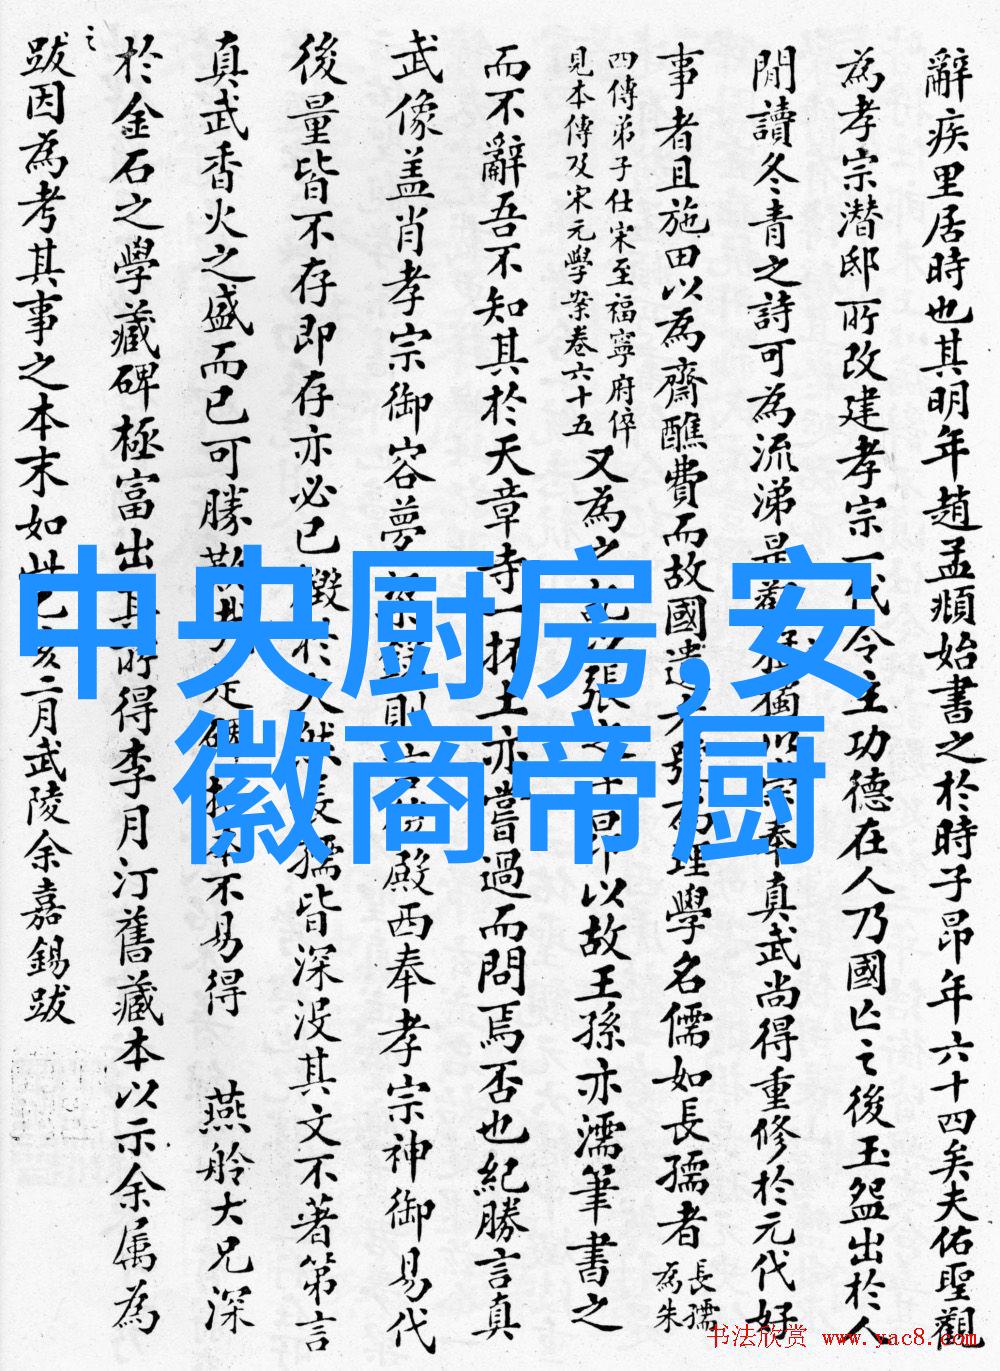 辭疾里居時也其明年趙孟頫始書之於時子昂年六十四矣夫佑聖觀
為孝宗潛邸所改建孝宗一代令主功德在人乃國亡之後玉盌出於人
間讀冬青之詩可為流涕是觀獨以崇奉真武尚得重修於元代好
事者且施田以為齋醮費而故國遺號為理學名儒如長孺者
長孺
為朱
四傳弟子仕宋至福寧府倅
見本傳及宋元學案卷六十五
又為之記張之子昂以故王孫亦濡筆書之
而不辭吾不知其於天章寺一抔土亦嘗過而問焉否也紀勝言真
武像蓋肖孝宗御容夢則殿西奉孝宗神御易代
後量皆不存即存亦必已燬於火然長孺皆深沒其文不著第言
真武香火之盛而已可勝歎哉是碑拓本不易得 燕舲大兄深
於金石之學藏碑極富出其所得李月汀舊藏本以示余屬為
之
跋因為考其事之本末如此乙亥二月武陵余嘉錫跋
中央厨房,安
徽商帝厨
书法欣赏 www.yac8.com